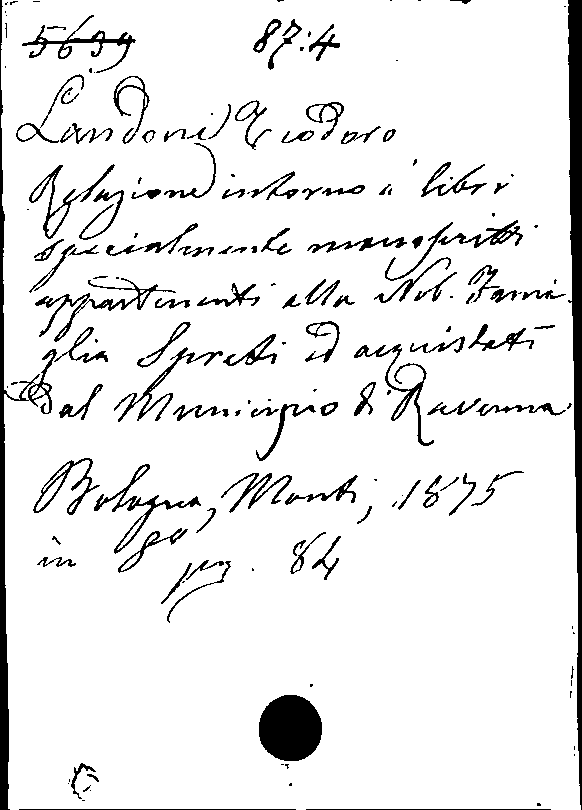 5639 87:4
Landoni Teodoro
Relazione intorno a' libri
specialmente manoscritti
appartenenti alla Nob. Fami-
glia Spreti ed acquistati
dal Municipio di Ravenna
Bologna, Monti, 1875
in 8º pag. 84